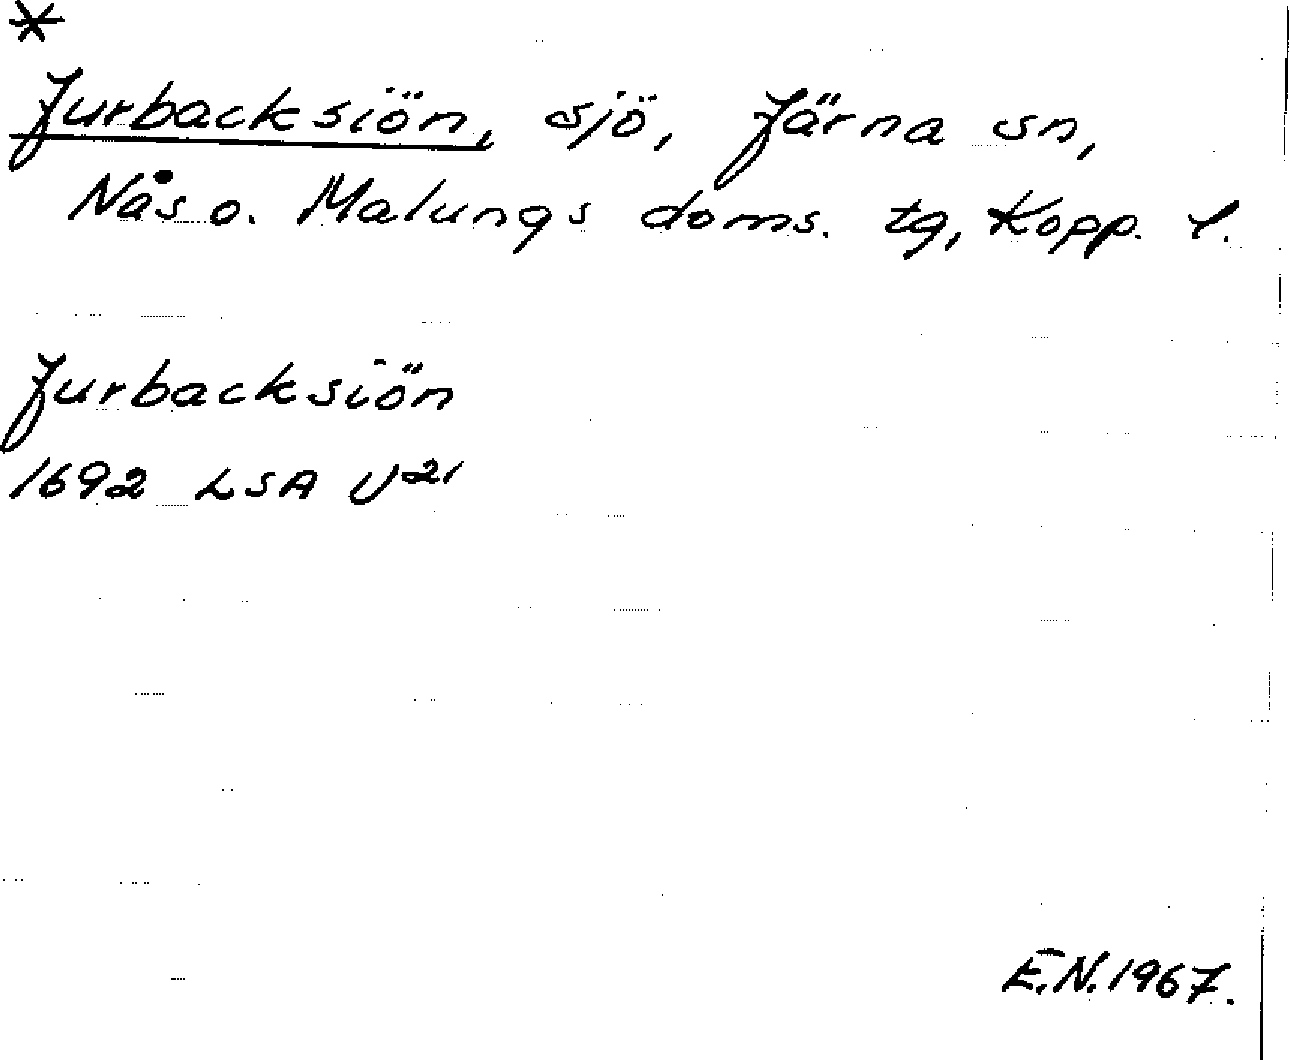 *
Jurbacksiön, sjö, Järna sn,
Nås o. Malungs doms. tg, Kopp. l.
Jurbacksiön
1692 LSA U²¹
E.N. 1967.